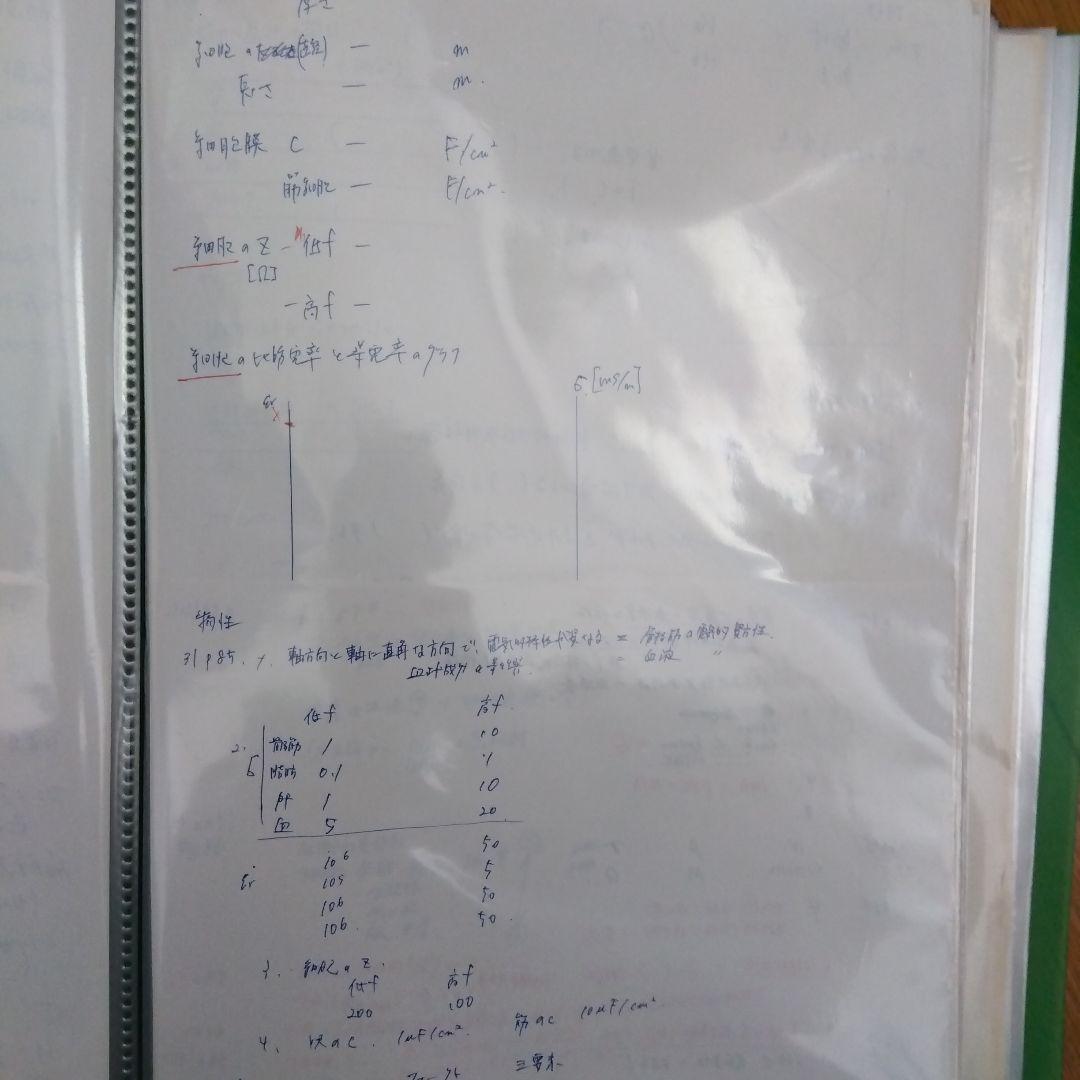 厚さ
細胞の (直径) — m
長さ — m.
細胞膜 C — F/cm²
筋細胞 — F/cm².
細胞のZ — 低f —
[Ω]
— 高f —
細胞の比誘電率と導電率のグラフ
εr
σ [mS/m]
物性
31 p85. 1. 軸方向と軸に直角な方向で、電気的特性が異なる = 骨格筋の電気的異方性.
血球成分の = 血液 〃
低f 高f.
2. σ 骨格筋 1 10
脂肪 0.1 1
肝 1 10
血 5 20
εr 10⁶ 50
10⁵ 5
10⁶ 50
10⁶. 50.
3. 細胞のZ.
低f 高f
200 100
4. 膜のC. 1μF/cm². 筋のC 10μF/cm²
三要素